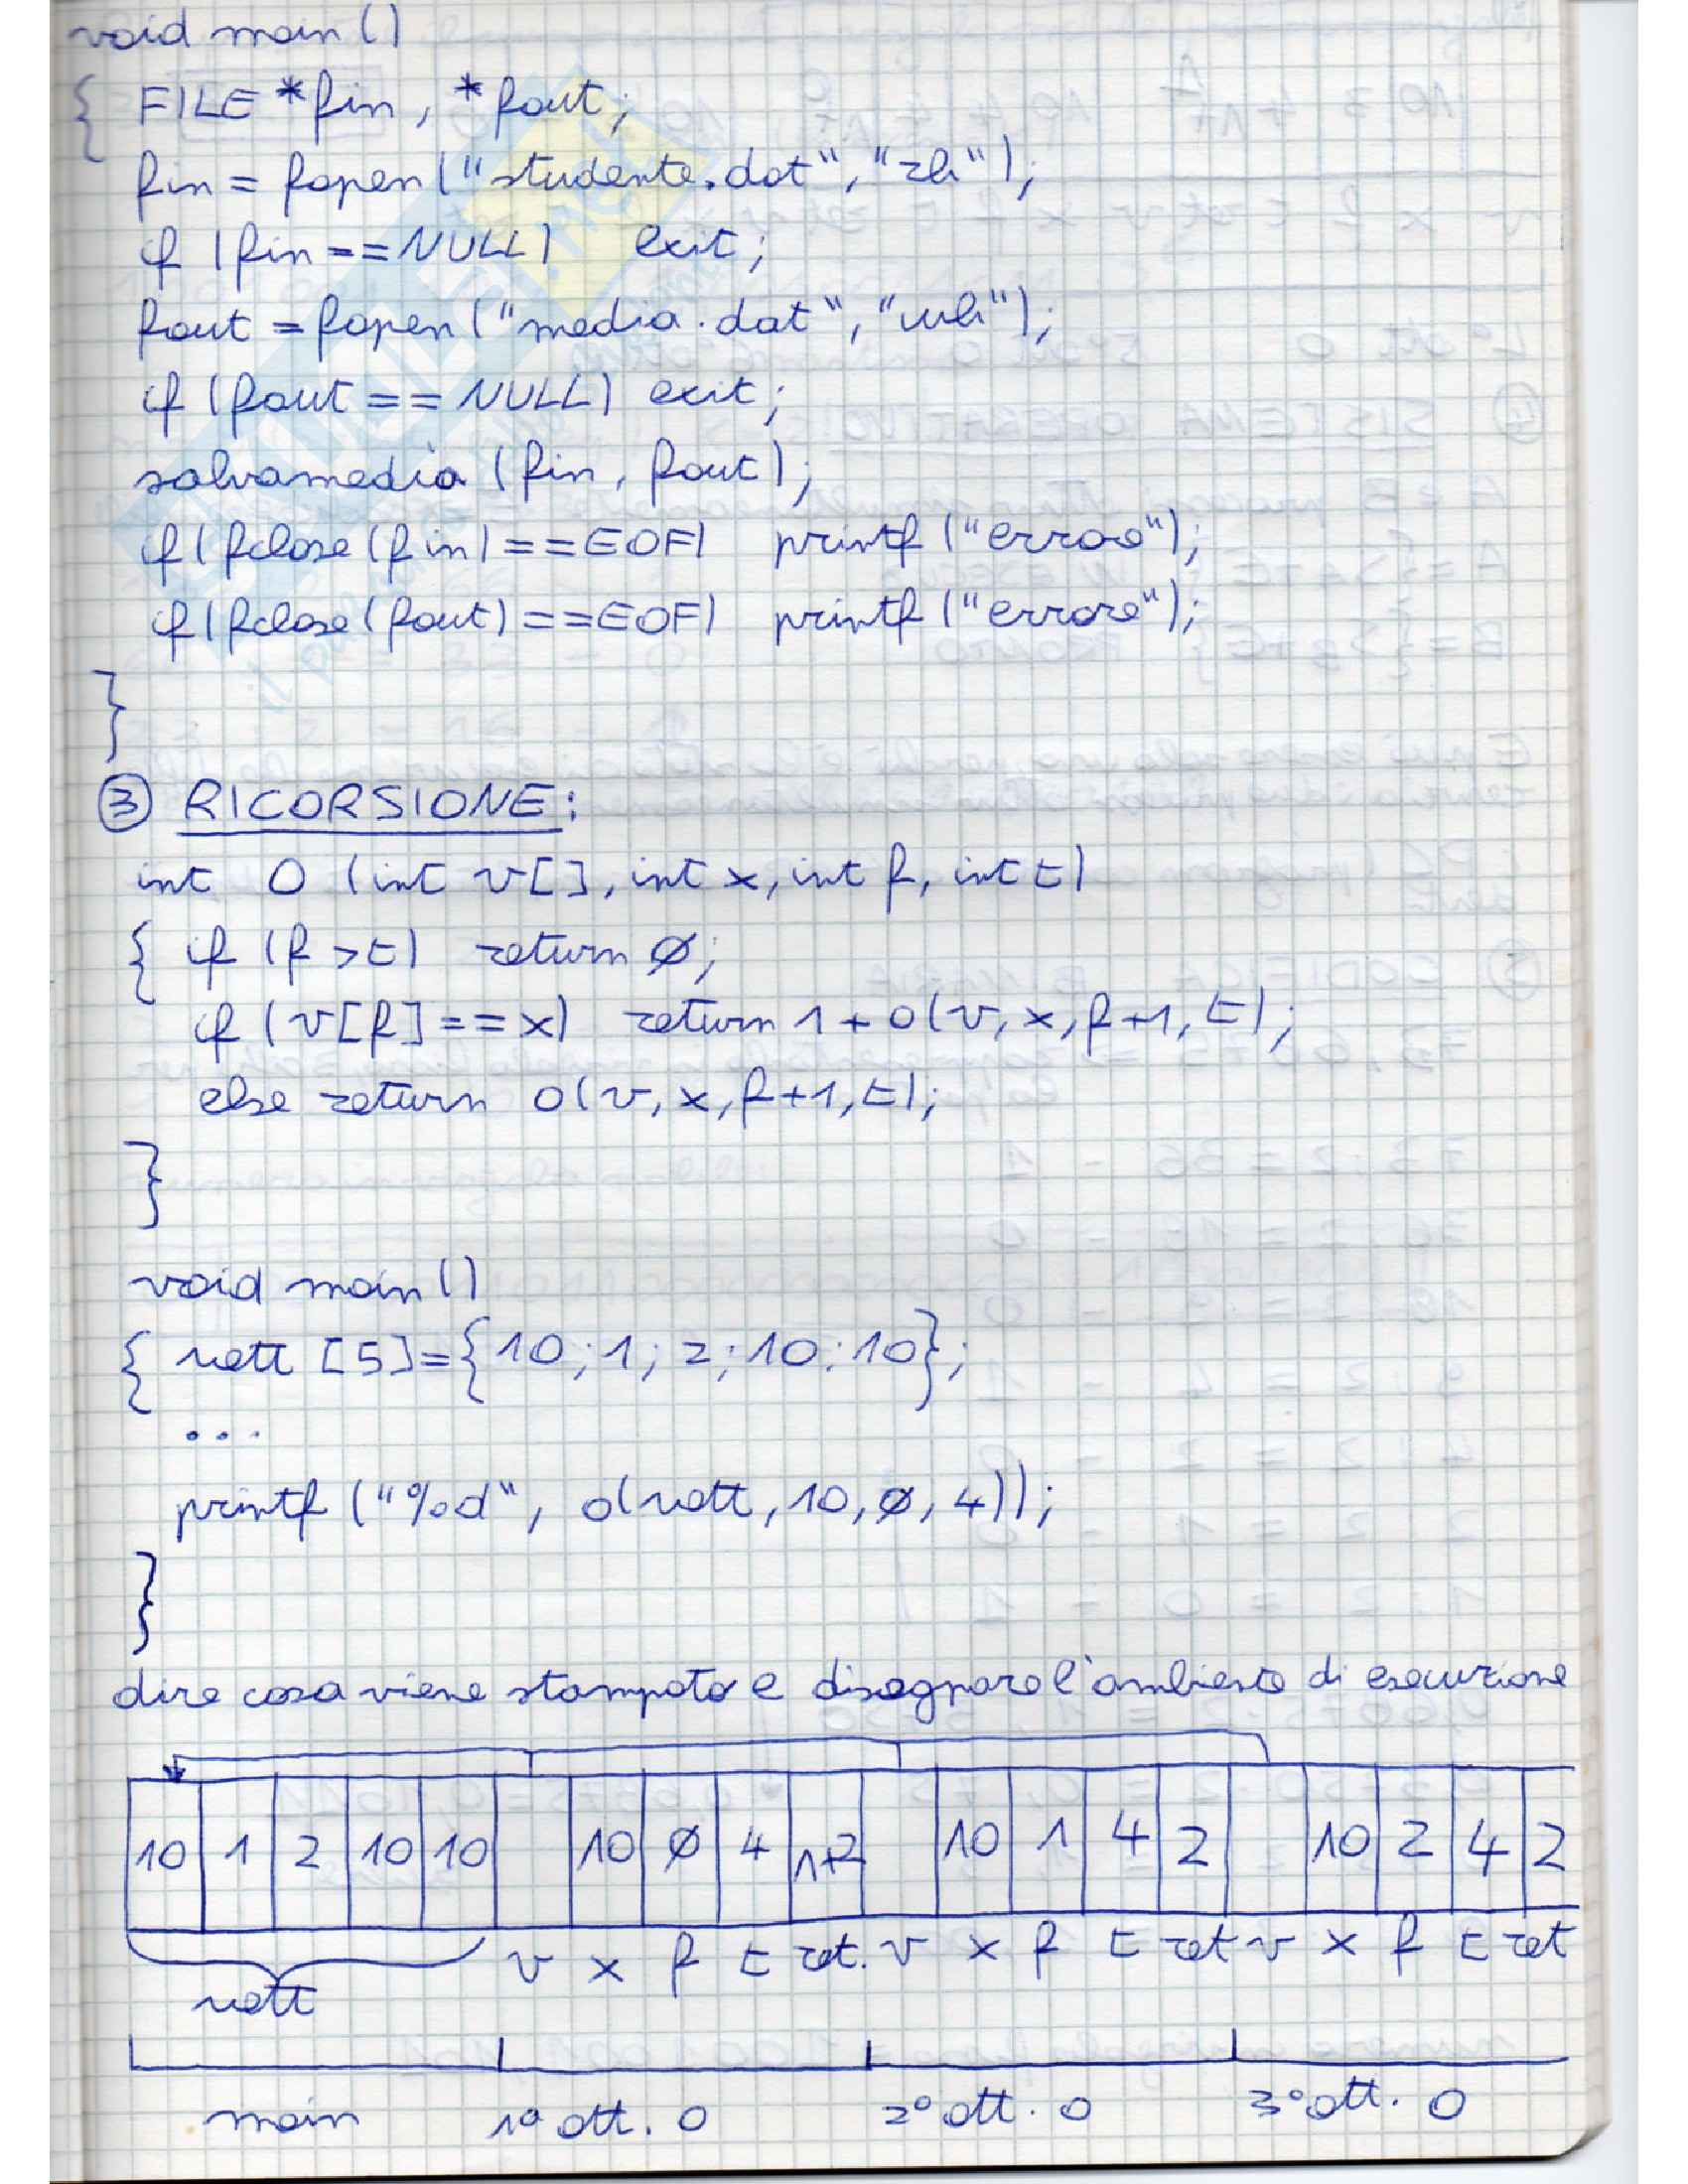 void main ()
{ FILE *fin, *fout;
fin = fopen ("studente.dat", "rb");
if (fin == NULL) exit;
fout = fopen ("media.dat", "wb");
if (fout == NULL) exit;
salvamedia (fin, fout);
if (fclose (fin) == EOF) printf ("errore");
if (fclose (fout) == EOF) printf ("errore");
}
③ RICORSIONE:
int O (int v[], int x, int f, int t)
{ if (f > t) return Ø;
if (v[f] == x) return 1 + o(v, x, f+1, t);
else return o(v, x, f+1, t);
}
void main ()
{ vett [5] = {10; 1; 2; 10; 10};
...
printf ("%d", o(vett, 10, Ø, 4));
}
dire cosa viene stampato e disegnare l'ambiente di esecuzione
10 1 2 10 10 10 Ø 4 1+2 10 1 4 2 10 2 4 2
v x f t ret. v x f t ret v x f t ret
vett
main 1° att. O 2° att. O 3° att. O